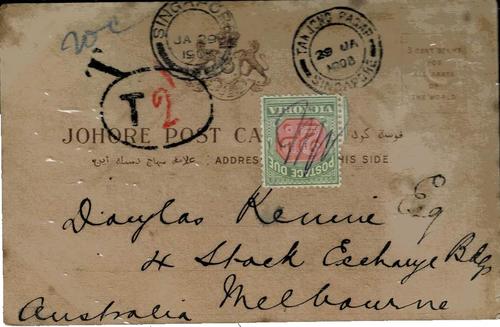 20c
SINGAPORE
JA 29
190
TANJONG PAGAR
29 JA
1906
SINGAPORE
3 CENT STAMP
FOR
ALL PARTS
OF
THE WORLD
T
2
JOHORE POST CA
ADDRESS
THIS SIDE
VICTORIA
POSTAGE DUE
Douglas Kennie Esq
4 Stock Exchange Bdgs
Melbourne
Australia